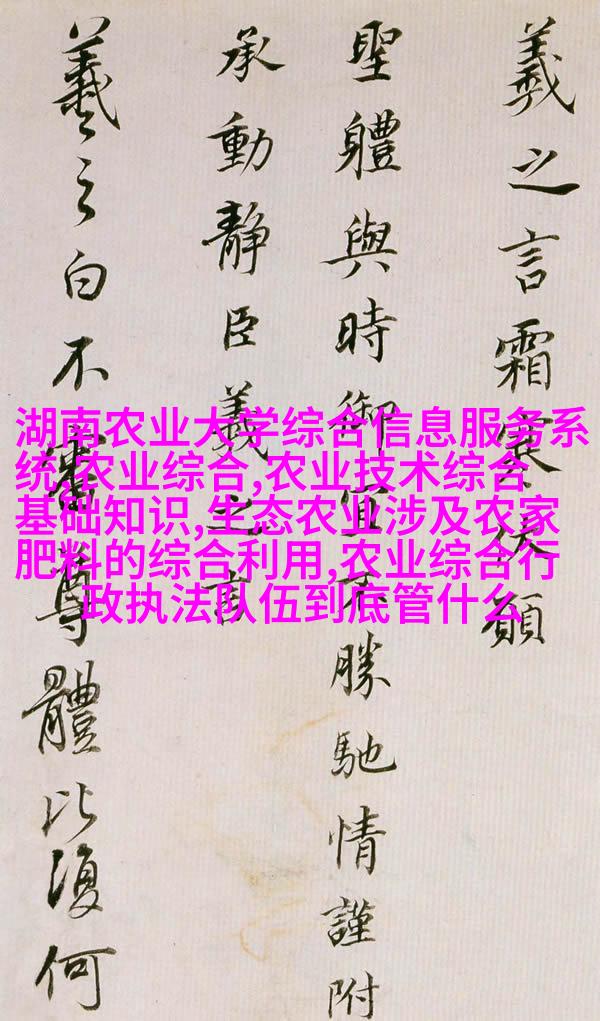 湖南农业大学综合信息服务系
统,农业综合,农业技术综合
基础知识,生态农业涉及农家
肥料的综合利用,农业综合行
政执法队伍到底管什么
羲之言霜寒伏願
聖體與時御宜不勝馳情謹附
承動靜臣羲之言
羲之白不審尊體比復何